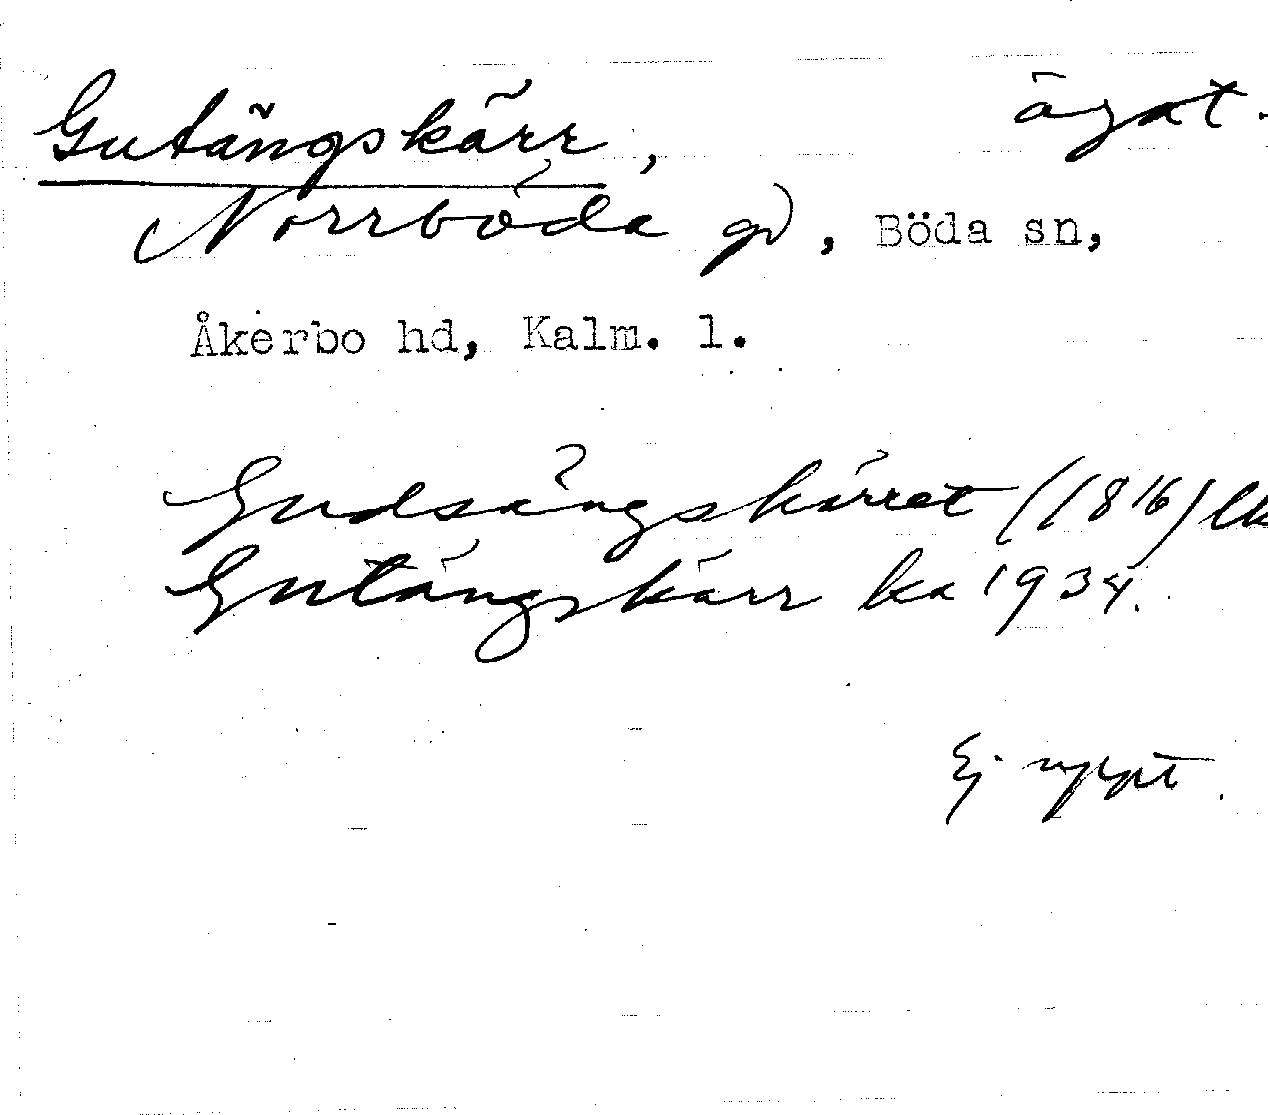 Gutängskärr, ägat.
Norrböda gd, Böda sn,
Åkerbo hd, Kalm. l.
Gudsängskärret (1816) lk
Gutängskärr ka 1934.
Ej uppt.